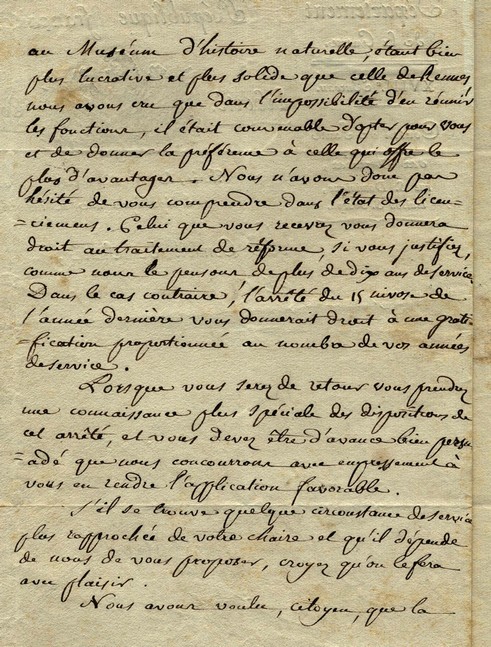 au Muséum d'histoire naturelle, étant bien
plus lucrative et plus solide que celle de Rennes
nous avons cru que dans l'impossibilité d'en réunir
les fonctions, il était convenable d'opter pour vous
et de donner la préférence à celle qui offre le
plus d'avantages. Nous n'avons donc pas
hésité de vous comprendre dans l'état des licen-
=ciemens. Celui que vous recevez vous donnera
droit au traitement de réforme, si vous justifiez,
comme nous le pensons de plus de dix ans de service
Dans le cas contraire, l'arrêté du 15 nivose de
l'année dernière vous donnerait droit à une grati
=fication proportionnée au nombre de vos années
de service.
Lorsque vous serez de retour vous prendrez
une connaissance plus spéciale des dispositions de
cet arrêté, et vous devez être d'avance bien persu
=adé que nous concourrons avec empressement à
vous en rendre l'application favorable.
S'il se trouve quelque circonstance de service
plus rapprochée de votre chaire et qu'il dépende
de nous de vous proposer, croyez qu'on le fera
avec plaisir.
Nous avons voulu, citoyen, que la